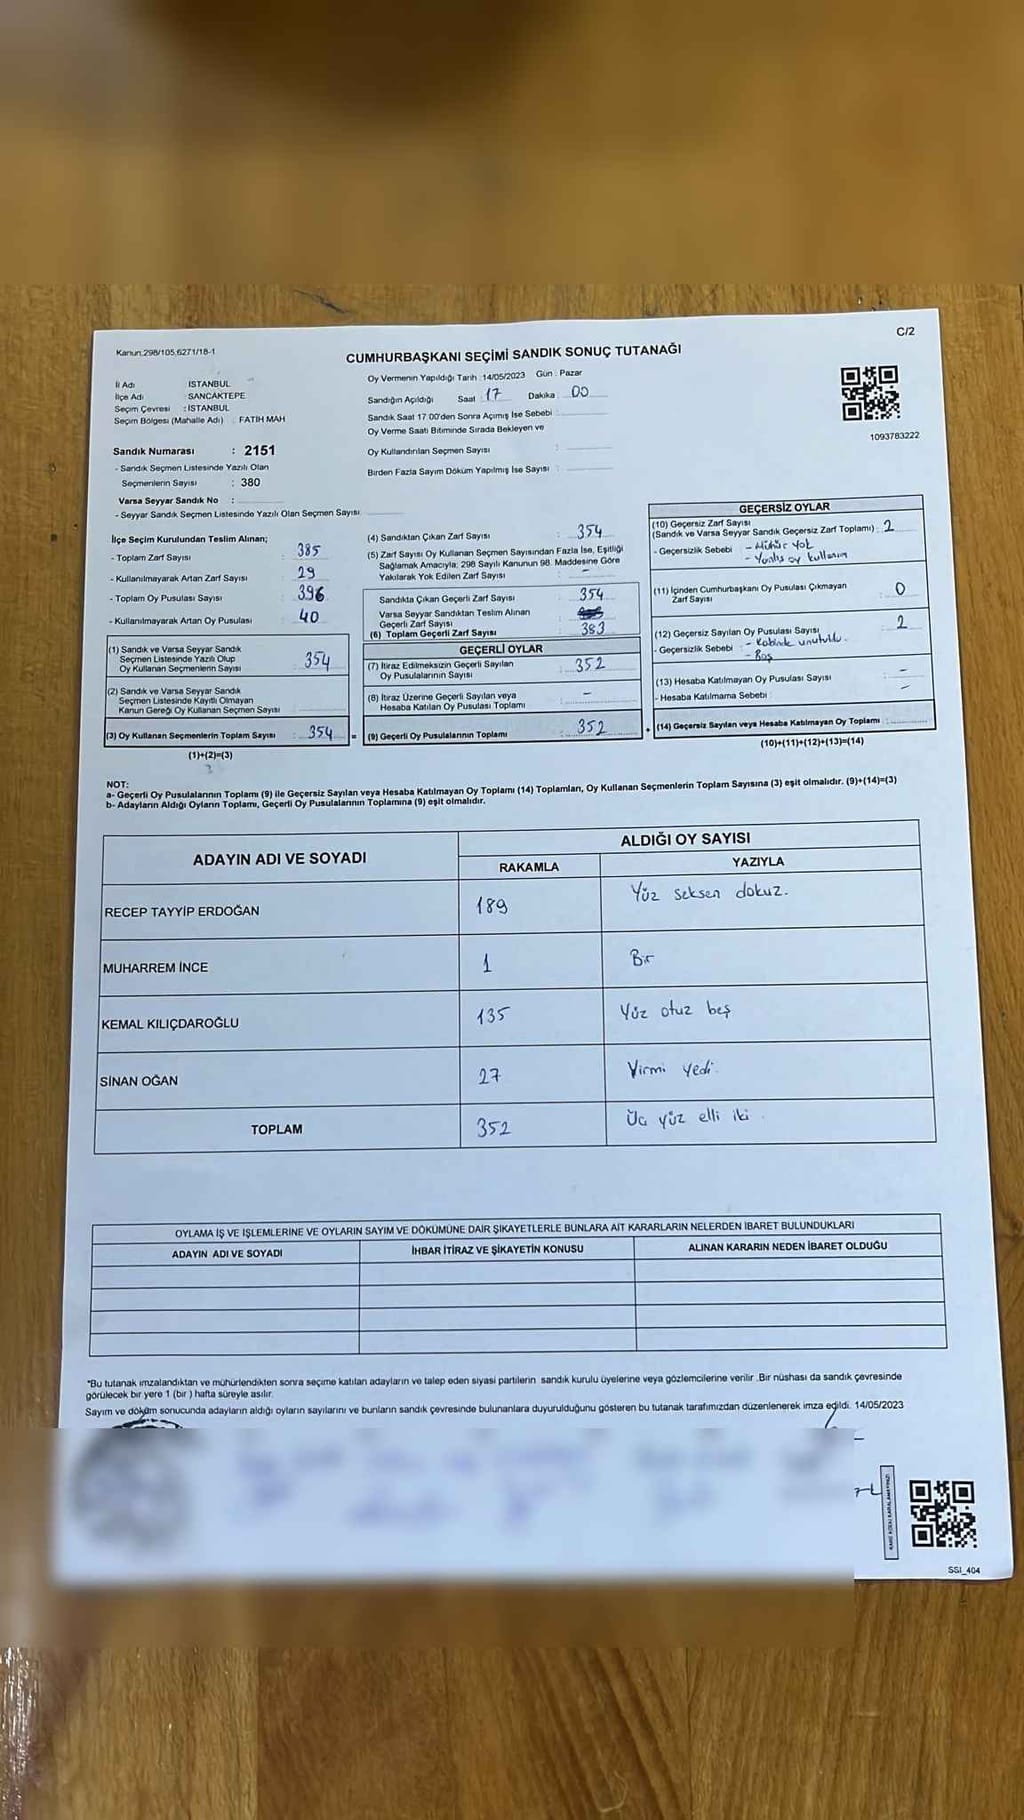 C/2
Kanun:298/105,6271/18-1
CUMHURBAŞKANI SEÇİMİ SANDIK SONUÇ TUTANAĞI
İl Adı İSTANBUL
İlçe Adı SANCAKTEPE
Seçim Çevresi : İSTANBUL
Seçim Bölgesi (Mahalle Adı) : FATİH MAH
Oy Vermenin Yapıldığı Tarih :14/05/2023 Gün : Pazar
Sandığın Açıldığı Saat : 17 Dakika : 00
Sandık Saat 17.00'den Sonra Açımış İse Sebebi :
Oy Verme Saati Bitiminde Sırada Bekleyen ve
Oy Kullandırılan Seçmen Sayısı :
Birden Fazla Sayım Döküm Yapılmış İse Sayısı :
1093783222
Sandık Numarası : 2151
- Sandık Seçmen Listesinde Yazılı Olan
Seçmenlerin Sayısı : 380
Varsa Seyyar Sandık No :
- Seyyar Sandık Seçmen Listesinde Yazılı Olan Seçmen Sayısı:
İlçe Seçim Kurulundan Teslim Alınan;
- Toplam Zarf Sayısı : 385
- Kullanılmayarak Artan Zarf Sayısı : 29
- Toplam Oy Pusulası Sayısı : 396
- Kullanılmayarak Artan Oy Pusulası : 40
(1) Sandık ve Varsa Seyyar Sandık
Seçmen Listesinde Yazılı Olup
Oy Kullanan Seçmenlerin Sayısı : 354
(2) Sandık ve Varsa Seyyar Sandık
Seçmen Listesinde Kayıtlı Olmayan
Kanun Gereği Oy Kullanan Seçmen Sayısı :
(3) Oy Kullanan Seçmenlerin Toplam Sayısı : 354 =
(1)+(2)=(3)
(4) Sandıktan Çıkan Zarf Sayısı : 354
(5) Zarf Sayısı Oy Kullanan Seçmen Sayısından Fazla İse, Eşitliği
Sağlamak Amacıyla; 298 Sayılı Kanunun 98. Maddesine Göre
Yakılarak Yok Edilen Zarf Sayısı :
Sandıkta Çıkan Geçerli Zarf Sayısı : 354
Varsa Seyyar Sandıktan Teslim Alınan
Geçerli Zarf Sayısı :
(6) Toplam Geçerli Zarf Sayısı : 383
GEÇERLİ OYLAR
(7) İtiraz Edilmeksizin Geçerli Sayılan
Oy Pusulalarının Sayısı : 352
(8) İtiraz Üzerine Geçerli Sayılan veya
Hesaba Katılan Oy Pusulası Toplamı : -
(9) Geçerli Oy Pusulalarının Toplamı : 352 +
GEÇERSİZ OYLAR
(10) Geçersiz Zarf Sayısı
(Sandık ve Varsa Seyyar Sandık Geçersiz Zarf Toplamı) : 2
- Geçersizlik Sebebi - Mühür yok
- Yanlış oy kullanım
(11) İçinden Cumhurbaşkanı Oy Pusulası Çıkmayan
Zarf Sayısı : 0
(12) Geçersiz Sayılan Oy Pusulası Sayısı : 2
- Geçersizlik Sebebi : - Kabinde unutuldu.
- Boş
(13) Hesaba Katılmayan Oy Pusulası Sayısı : -
- Hesaba Katılmama Sebebi : -
(14) Geçersiz Sayılan veya Hesaba Katılmayan Oy Toplamı :
(10)+(11)+(12)+(13)=(14)
NOT:
a- Geçerli Oy Pusulalarının Toplamı (9) ile Geçersiz Sayılan veya Hesaba Katılmayan Oy Toplamı (14) Toplamları, Oy Kullanan Seçmenlerin Toplam Sayısına (3) eşit olmalıdır. (9)+(14)=(3)
b- Adayların Aldığı Oyların Toplamı, Geçerli Oy Pusulalarının Toplamına (9) eşit olmalıdır.
ADAYIN ADI VE SOYADI ALDIĞI OY SAYISI
RAKAMLA YAZIYLA
RECEP TAYYİP ERDOĞAN 189 Yüz seksen dokuz.
MUHARREM İNCE 1 Bir
KEMAL KILIÇDAROĞLU 135 Yüz otuz beş
SİNAN OĞAN 27 Yirmi yedi.
TOPLAM 352 Üç yüz elli iki.
OYLAMA İŞ VE İŞLEMLERİNE VE OYLARIN SAYIM VE DÖKÜMÜNE DAİR ŞİKAYETLERLE BUNLARA AİT KARARLARIN NELERDEN İBARET BULUNDUKLARI
ADAYIN ADI VE SOYADI İHBAR İTİRAZ VE ŞİKAYETİN KONUSU ALINAN KARARIN NEDEN İBARET OLDUĞU
"Bu tutanak imzalandıktan ve mühürlendikten sonra seçime katılan adayların ve talep eden siyasi partilerin sandık kurulu üyelerine veya gözlemcilerine verilir .Bir nüshası da sandık çevresinde
görülecek bir yere 1 (bir ) hafta süreyle asılır.
Sayım ve döküm sonucunda adayların aldığı oyların sayılarını ve bunların sandık çevresinde bulunanlara duyurulduğunu gösteren bu tutanak tarafımızdan düzenlenerek imza edildi. 14/05/2023
SSI_404